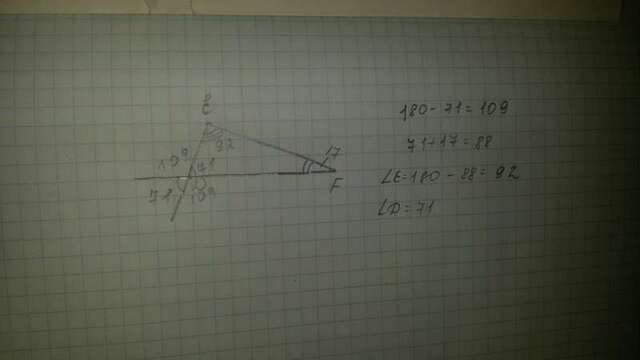 E
92
109
71
17
71
109
F
180 - 71 = 109
71 + 17 = 88
∠E = 180 - 88 = 92
∠D = 71